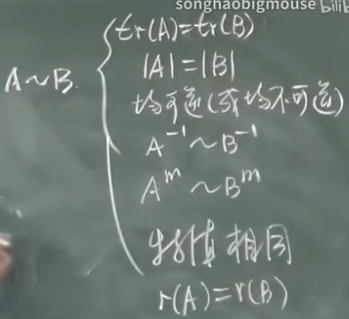 songhaobigmouse bilib
A∼B
tr(A)=tr(B)
|A|=|B|
均可逆(或均不可逆)
A⁻¹∼B⁻¹
Aᵐ∼Bᵐ
特征值相同
r(A)=r(B)